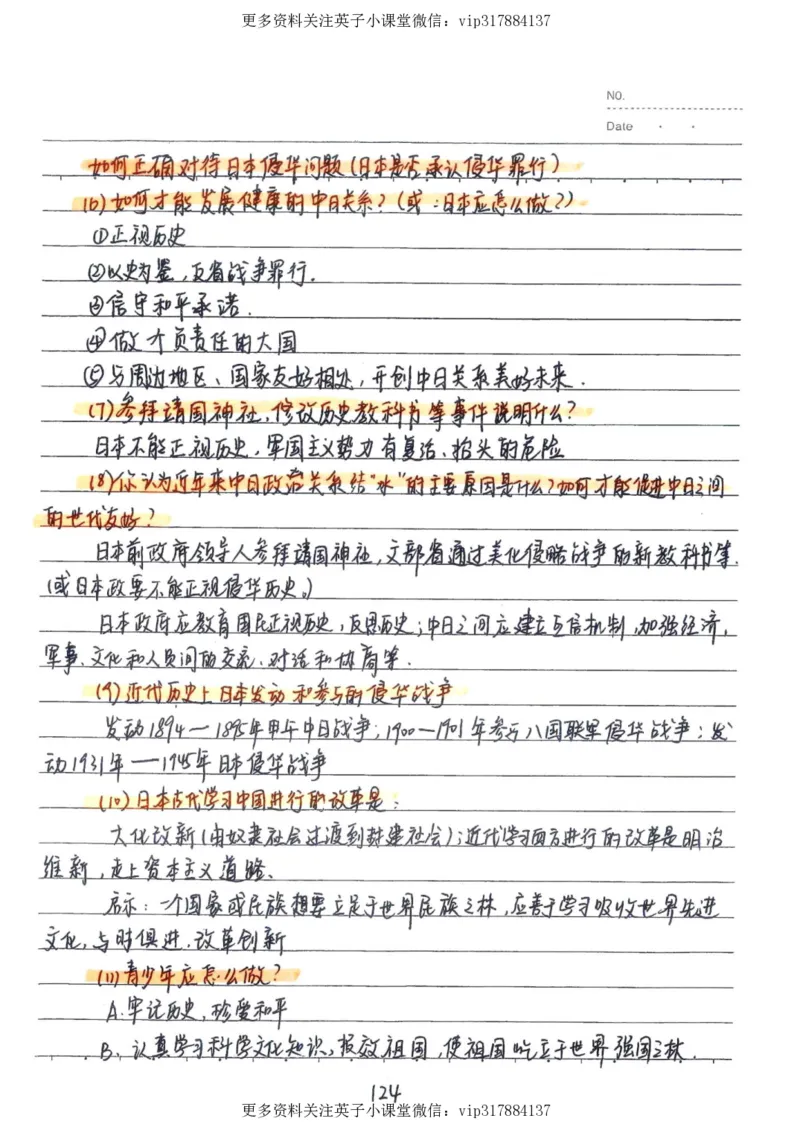 更多资料关注英子小课堂微信：vip317884137
NO.
Date
如何正确对待日本侵华问题(日本是否承认侵华罪行)
(6)如何才能发展健康的中日关系？(或：日本应怎么做？)
①正视历史
②以史为鉴，反省战争罪行.
③信守和平承诺.
④做个负责任的大国
⑤与周边地区、国家友好相处，开创中日关系美好未来.
(7)参拜靖国神社，修改历史教科书等事件说明什么？
日本不能正视历史，军国主义势力有复活、抬头的危险
(8)你认为近年来中日政治关系结"冰"的主要原因是什么？如何才能促进中日之间
的世代友好？
日本前政府领导人参拜靖国神社，文部省通过美化侵略战争的新教科书等.
(或日本政要不能正视侵华历史。)
日本政府应教育国民正视历史，反思历史；中日之间应建立互信机制，加强经济，
军事、文化和人员间的交流、对话和协商等.
(9)近代历史上日本发动和参与的侵华战争
发动1894—1895年甲午中日战争；1900—1901年参与八国联军侵华战争；发
动1931年—1945年日本侵华战争
(10)日本古代学习中国进行的改革是：
大化改新(由奴隶社会过渡到封建社会)；近代学习西方进行的改革是明治
维新，走上资本主义道路、
启示：一个国家或民族想要立足于世界民族之林，应善于学习吸收世界先进
文化，与时俱进，改革创新
(11)青少年应怎么做？
A.牢记历史，珍爱和平
B、认真学习科学文化知识，报效祖国，使祖国屹立于世界强国之林.
124
更多资料关注英子小课堂微信：vip317884137